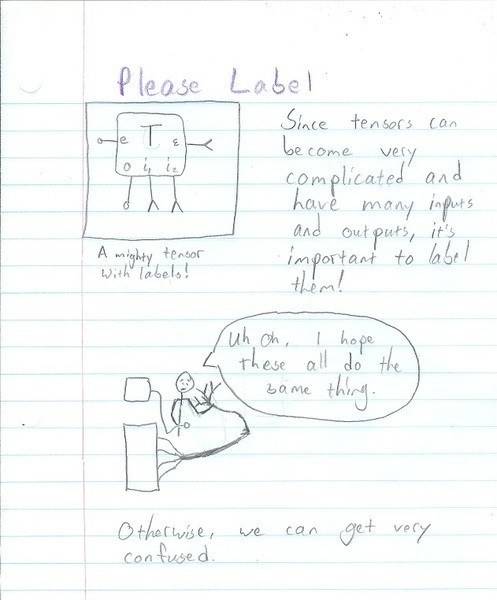 Please Label
e T ε
o i₁ i₂
A mighty tensor
with labels!
Since tensors can
become very
complicated and
have many inputs
and outputs, it's
important to label
them!
Uh oh, I hope
these all do the
same thing.
Otherwise, we can get very
confused.